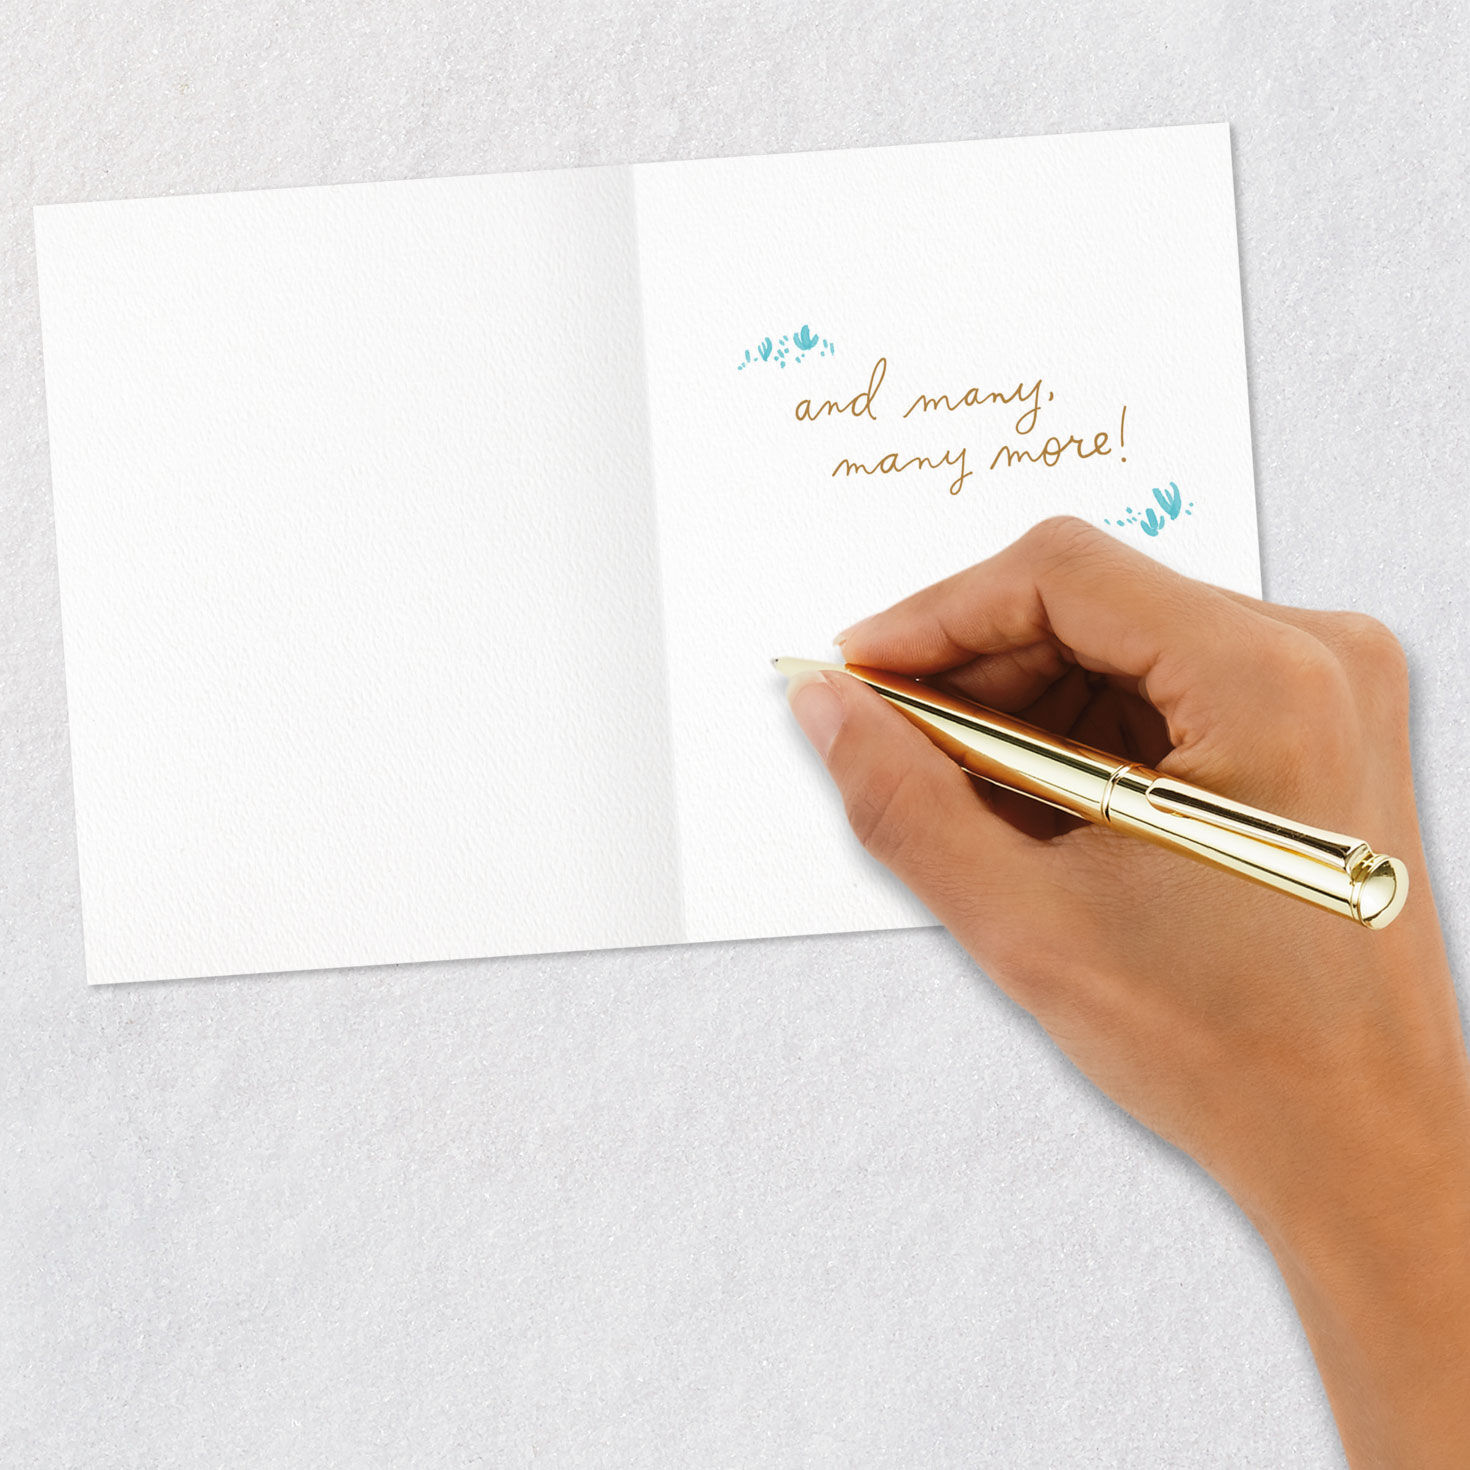 and many,
many more!